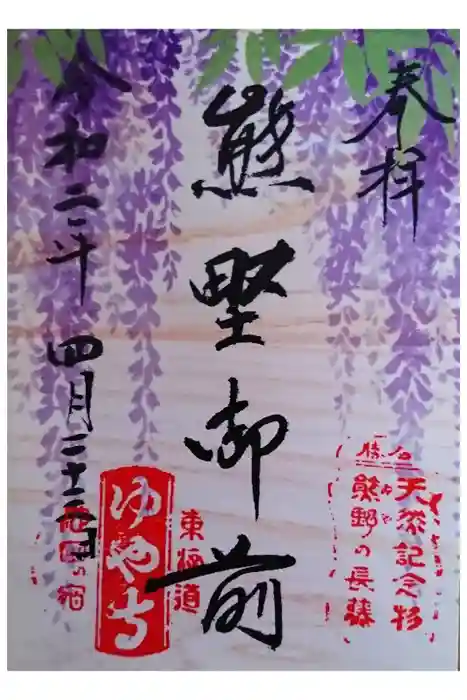 奉拝
名勝
天然記念物
熊野の長藤
ゆや
熊野御前
東海道
ゆや寺
池田の宿
令和二年四月二十二日